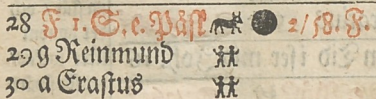 28 F 1. S. e. Påsk 2/58. F.
29 g Reinmund
30 a Erastus